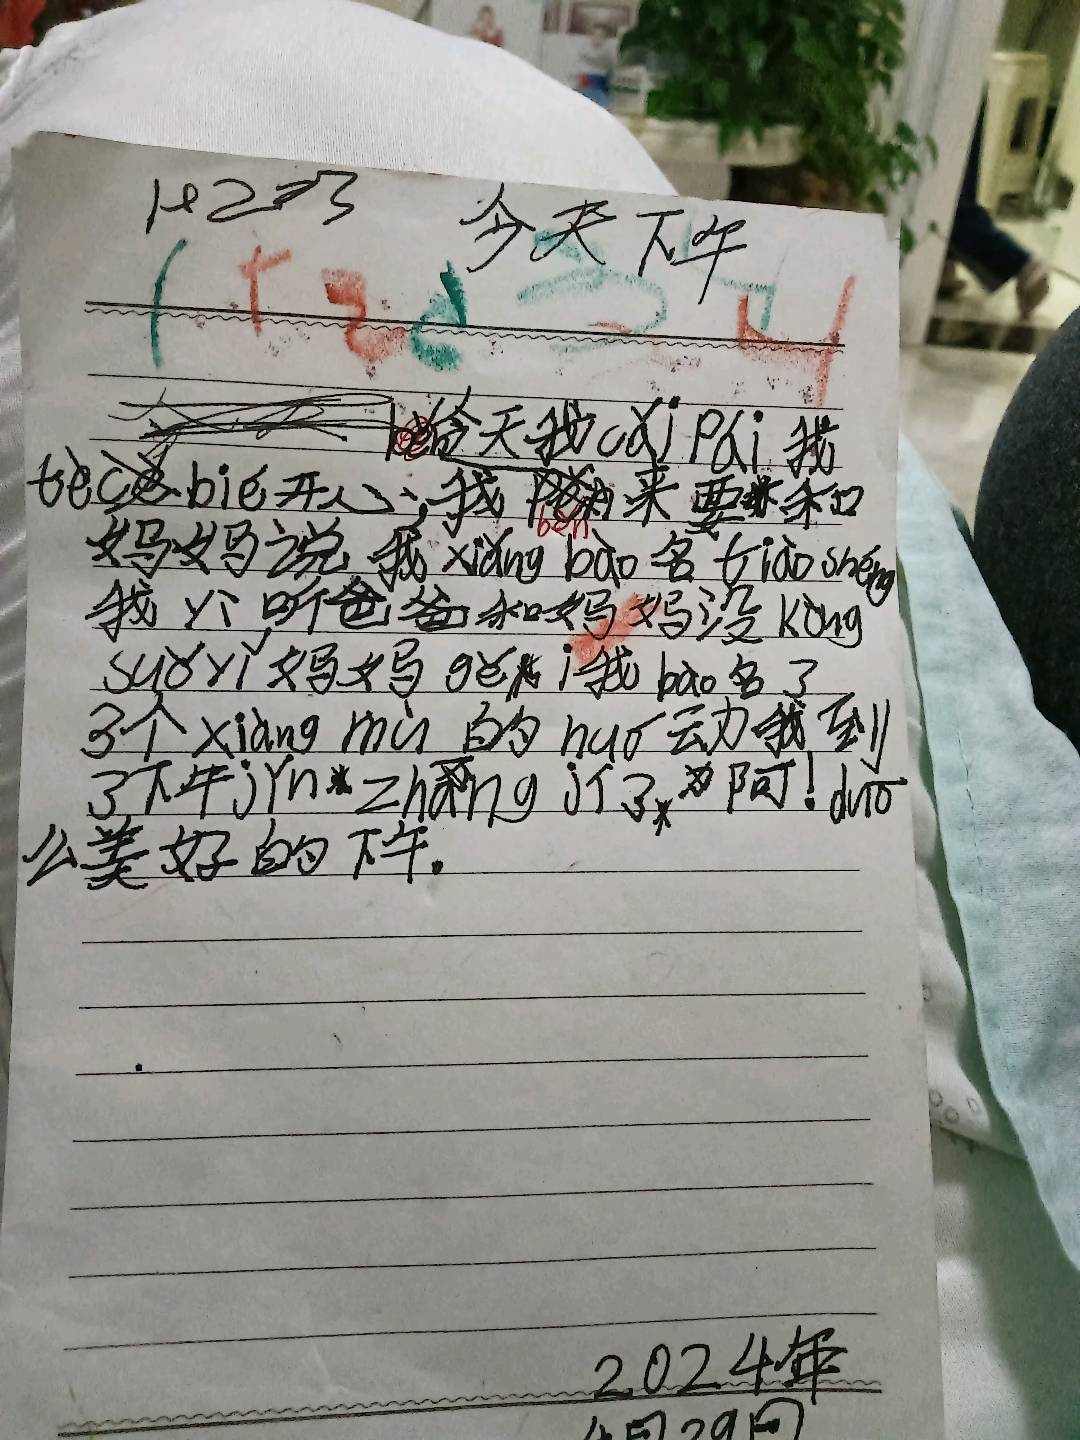 今天下午
今天我cǎi Pái 我
tècè bié开心,我 běn 来 要 和
妈妈说 我 xiáng bào 名 tiào shéng
我 yì 听爸爸和妈妈没 kòng
suǒ yǐ 妈妈 gěi 我 bào 名了
3个 xiàng mù 的 huó 动我到
了下午 jǐn zhāng jí了阿!duō
么美好的下午.
2024年
4月29日